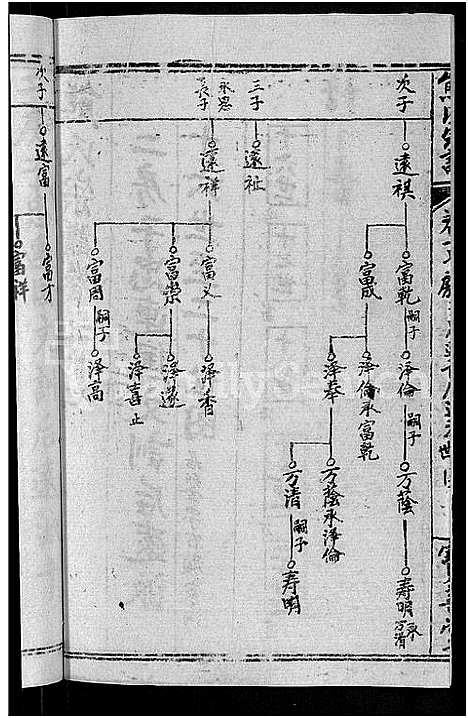 次子
遠祺
富乾
嗣子
泽倫
嗣子
万蔭
寿明承万清
富晟
泽倫承富乾
泽奉
万蔭承泽倫
万清
嗣子
寿明
三子
遠祉
永恩
長子
遠祥
富义
泽香
富崇
泽遂
泽喜止
富周
嗣子
泽高
次子
遠富
富才
富祥